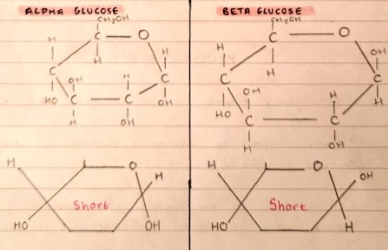 ALPHA GLUCOSE
CH₂OH
C O
H H
H
C C
OH H
HO C C OH
H OH
H O H
Short
HO OH
BETA GLUCOSE
CH₂OH
C O
H OH
H
C C
OH H
HO C C H
H OH
H O OH
Short
HO H